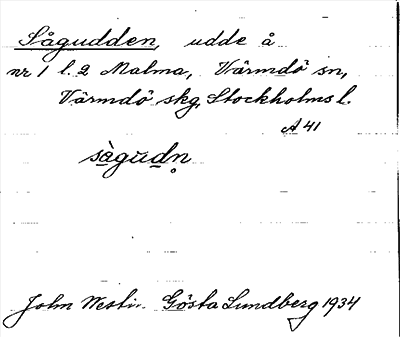 Sågudden, udde å
nr 1 l. 2 Malma, Värmdö sn,
Värmdö skg, Stockholms l.
A 41
sàgudn̥
John Westin Gösta Lundberg 1934